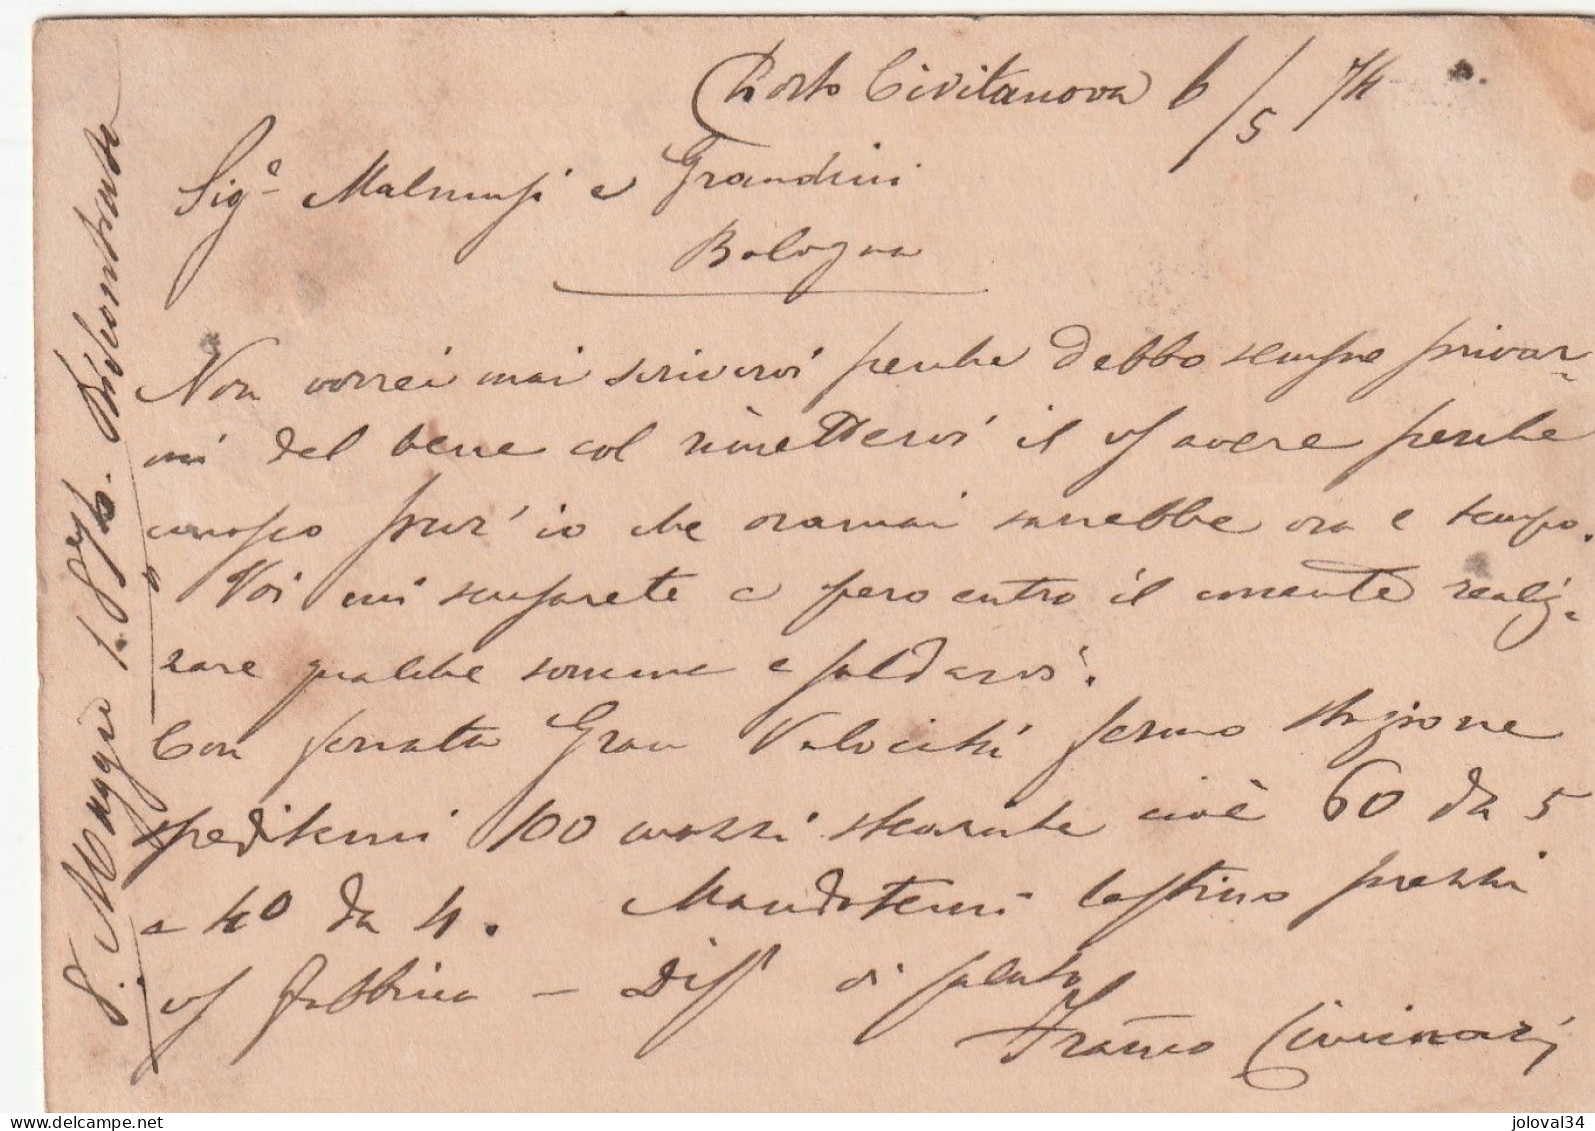 Porto Civitanova 6/5 74
Sigi Malmusi e Grandini
Bologna
Non vorrei mai scrivervi perche debbo sempre privar-
mi del bene col rimettervi il Vs avere perche
conosco pur' io che oramai sarrebbe ora e tempo.
Voi mi scusarete e pero entro il corrente realiz-
zare qualche somma e saldarvi.
Con ferrata Gran Velocità fermo stazione
speditemi 100 mazzi steariche cioè 60 da 5
e 40 da 4. Mandatemi l'ultimo prezzi
Vs fabbrica – Di Vi saluto
Franco
8. Maggio 1874. Riscontrato
joloval34